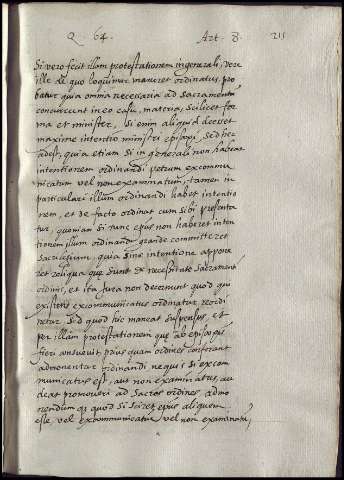 Q. 64. Art. 8. 211
Si vero fecit illam protestationem in generali, vere
ille de quo loquimur maneret ordinatus, pro
batur quia omnia necessaria ad sacramentum
concurrunt in eo casu, materia, scilicet for
ma et minister, si enim aliquid deesset
maxime intentio ministri episcopi, sed hec
adest, quia etiam si in generali non habeat
intentionem ordinandi petrum excommu
nicatum vel non examinatum, tamen in
particulari illum ordinandi habet intentio
nem, et de facto ordinat cum sibi presenta
tur, quoniam si tunc epus non haberet inten
tionem illum ordinandi grande committeret
sacrilegium, quia sine intentione appone
ret reliqua que sunt de necessitate sacramenti
ordinis, et ita jura non decernunt quod qui
existens excommunicatus ordinatur reordi
netur sed quod hic maneat suspensus, et
per illam protestationem que ab episcopis
fieri consuevit paus quam ordines conferant
admonentur ordinandi ne quis si excom
municatus est, aut non examinatus, au
deat promoveri ad sacros ordines, admo
nendum quod si sciret epus aliquem
esse, vel excommunicatum vel non examinatum,